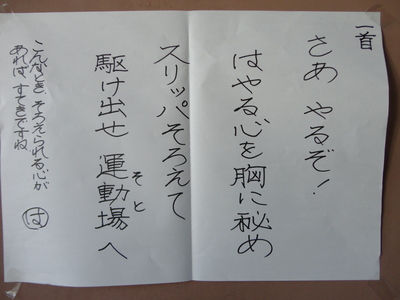 一首
さあ やるぞ!
はやる心を胸に秘め
スリッパそろえて
駆け出せ 運動場へ
そと
こんなとき、そろえられる心が
あれば、すてきですね
は